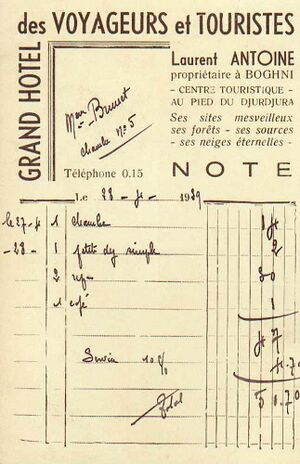 GRAND HOTEL
des VOYAGEURS et TOURISTES
Laurent ANTOINE
propriétaire à BOGHNI
- CENTRE TOURISTIQUE -
AU PIED DU DJURDJURA
Ses sites mesveilleux
ses forêts - ses sources
- ses neiges éternelles -
Brunet
chambre No 5
Téléphone 0.15
NOTE
Le 28-4-1939
le 27-4 1 chambre 14
-28- 1 petit dej simple 2
2 30
1 café 1
47
Service 10% 4.70
Total 50.70